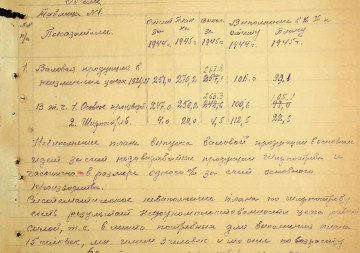 Таблица №1.
№№ п/п Показатели Отчет за 1944г. План на 1945г. Выпол. за 1945г. Выполнение в % % к отчету 1944г. Плану 1945г.
1. Валовая продукция в
неизменных ценах 1926/27 251,0 270,2 106,0
В т.ч. 1. Основ. производ. 247,0 250,2 106,6
2. Ширпотреб 4,0 20,0 4,5 112,5 22,5
Невыполнение плана выпуска валовой продукции в основном
идет за счет недовыработки продукции ширпотреба и
частично в размере одного % за счет основного
производства.
Систематическое невыполнение плана по ширпотребу
есть результат недоукомплектованности цеха рабочей
силой, т.е. вместо потребных для выполнения плана
15 человек, мы имеем 3 человек и мо они по возрасту